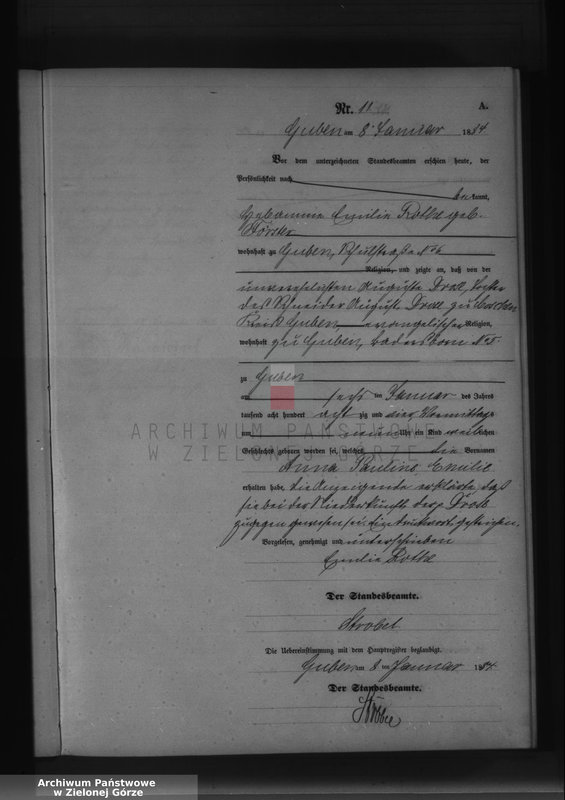 Nr. 11
A.
Guben am 8. Januar 1884
Vor dem unterzeichneten Standesbeamten erschien heute, der
Persönlichkeit nach
bekannt,
Hebamme Emilie Rothe geb.
Förster
wohnhaft zu Guben, Schulstraße No 6
Religion, und zeigte an, daß von der
unverehelichten Auguste Drose, Tochter
des Schneider August Drose zu
Kreis Guben evangelischer Religion,
wohnhaft zu Guben, No 5
zu Guben
am sechs ten Januar des Jahres
tausend acht hundert acht zig und vier Vormittags
um neun Uhr ein Kind weiblichen
Geschlechts geboren worden sei, welches die Vornamen
Anna Pauline Emilie
erhalten habe, die Anzeigende erklärte, daß
sie bei der Niederkunft der p. Drose
zugegen gewesen sei. Ein Druckwort gestrichen.
Vorgelesen, genehmigt und unterschrieben
Emilie Rothe
Der Standesbeamte.
Strobel
Die Uebereinstimmung mit dem Hauptregister beglaubigt.
Guben am 8 ten Januar 1884
Der Standesbeamte.
ARCHIWUM PAŃSTWOWE
W ZIELONEJ GÓRZE
Archiwum Państwowe
w Zielonej Górze